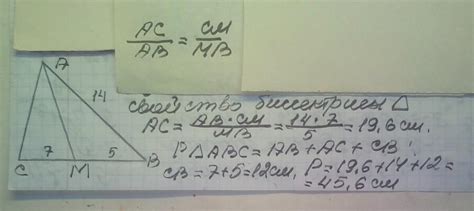 AC/AB = CM/MB
A
14
C 7 M 5 B
свойство биссектрисы Δ
AC = AB·CM/MB = 14·7/5 = 19,6 см.
PΔABC = AB + AC + CB
CB = 7+5 = 12см, P = 19,6+14+12 =
= 45,6 см